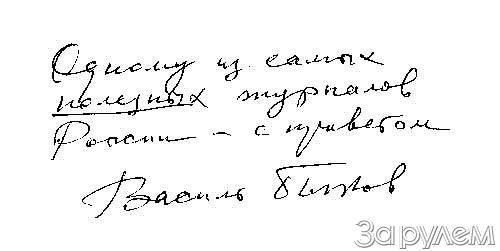 Одному из самых
полезных журналов
России – с приветом
Василь Быков
За рулем